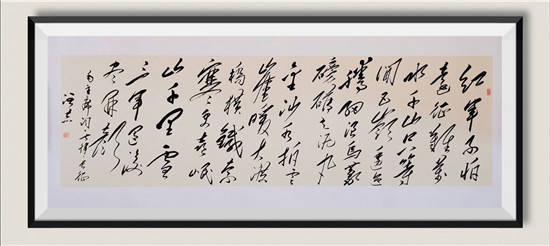 红军不怕
远征难万
水千山只等
闲五岭逶迤
腾细浪乌蒙
磅礴走泥丸
金沙水拍云
崖暖大渡
桥横铁索
寒更喜岷
山千里雪
三军过后
尽开颜
毛主席词七律长征